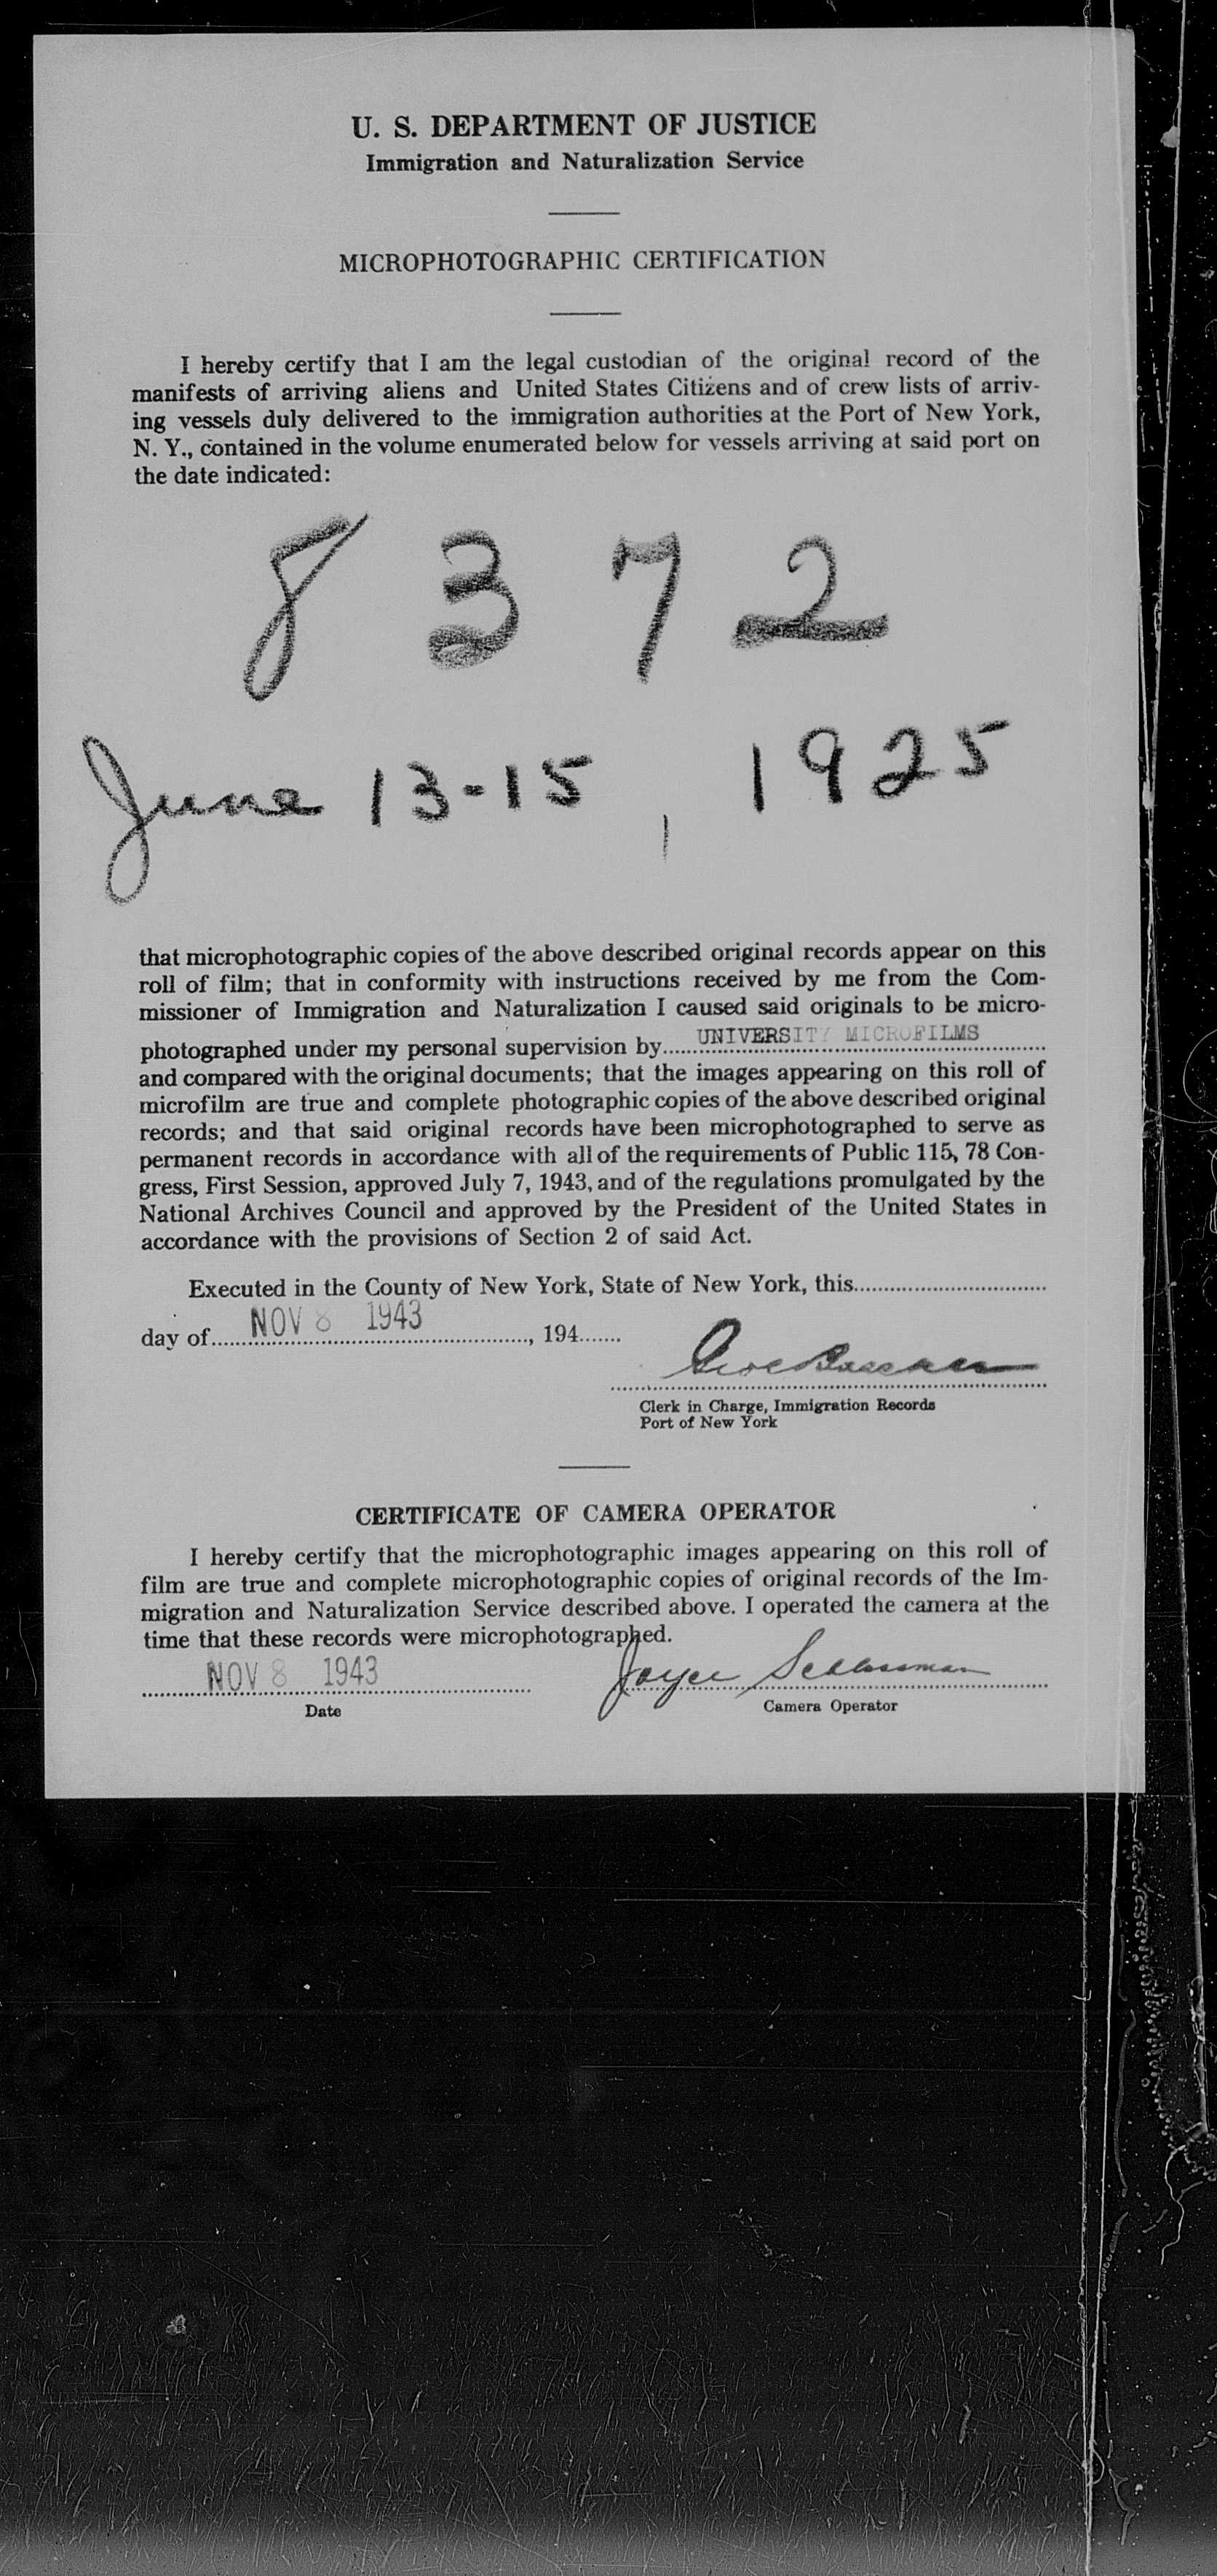 U. S. DEPARTMENT OF JUSTICE
Immigration and Naturalization Service
MICROPHOTOGRAPHIC CERTIFICATION
I hereby certify that I am the legal custodian of the original record of the
manifests of arriving aliens and United States Citizens and of crew lists of arriv-
ing vessels duly delivered to the immigration authorities at the Port of New York,
N. Y., contained in the volume enumerated below for vessels arriving at said port on
the date indicated:
8 3 7 2
June 13-15, 1925
that microphotographic copies of the above described original records appear on this
roll of film; that in conformity with instructions received by me from the Com-
missioner of Immigration and Naturalization I caused said originals to be micro-
photographed under my personal supervision by UNIVERSITY MICROFILMS
and compared with the original documents; that the images appearing on this roll of
microfilm are true and complete photographic copies of the above described original
records; and that said original records have been microphotographed to serve as
permanent records in accordance with all of the requirements of Public 115, 78 Con-
gress, First Session, approved July 7, 1943, and of the regulations promulgated by the
National Archives Council and approved by the President of the United States in
accordance with the provisions of Section 2 of said Act.
Executed in the County of New York, State of New York, this
day of NOV 8 1943, 194
Clerk in Charge, Immigration Records
Port of New York
CERTIFICATE OF CAMERA OPERATOR
I hereby certify that the microphotographic images appearing on this roll of
film are true and complete microphotographic copies of original records of the Im-
migration and Naturalization Service described above. I operated the camera at the
time that these records were microphotographed.
NOV 8 1943 Joyce
Date Camera Operator